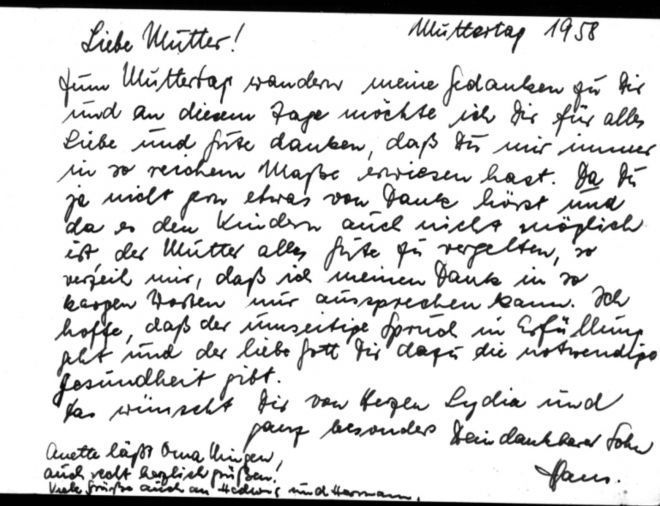 Muttertag 1958
Liebe Mutter!
Zum Muttertag wandern meine Gedanken zu Dir
und an diesem Tage möchte ich Dir für alles
Liebe und Gute danken, daß Du mir immer
in so reichem Maße erwiesen hast. Da Du
ja nicht gern etwas von Dank hörst und
da es den Kindern auch nicht möglich
ist der Mutter alles Gute zu vergelten, so
verzeih mir, daß ich meinen Dank in so
kargen Worten nur aussprechen kann. Ich
hoffe, daß der umseitige Spruch in Erfüllung
geht und der liebe Gott Dir dazu die notwendige
Gesundheit gibt.
Das wünscht Dir von Herzen Lydia und
ganz besonders Dein dankbarer Sohn
Hans.
Anette läßt Oma
auch recht herzlich grüßen.
Viele Grüße auch an Hedwig und Hermann.